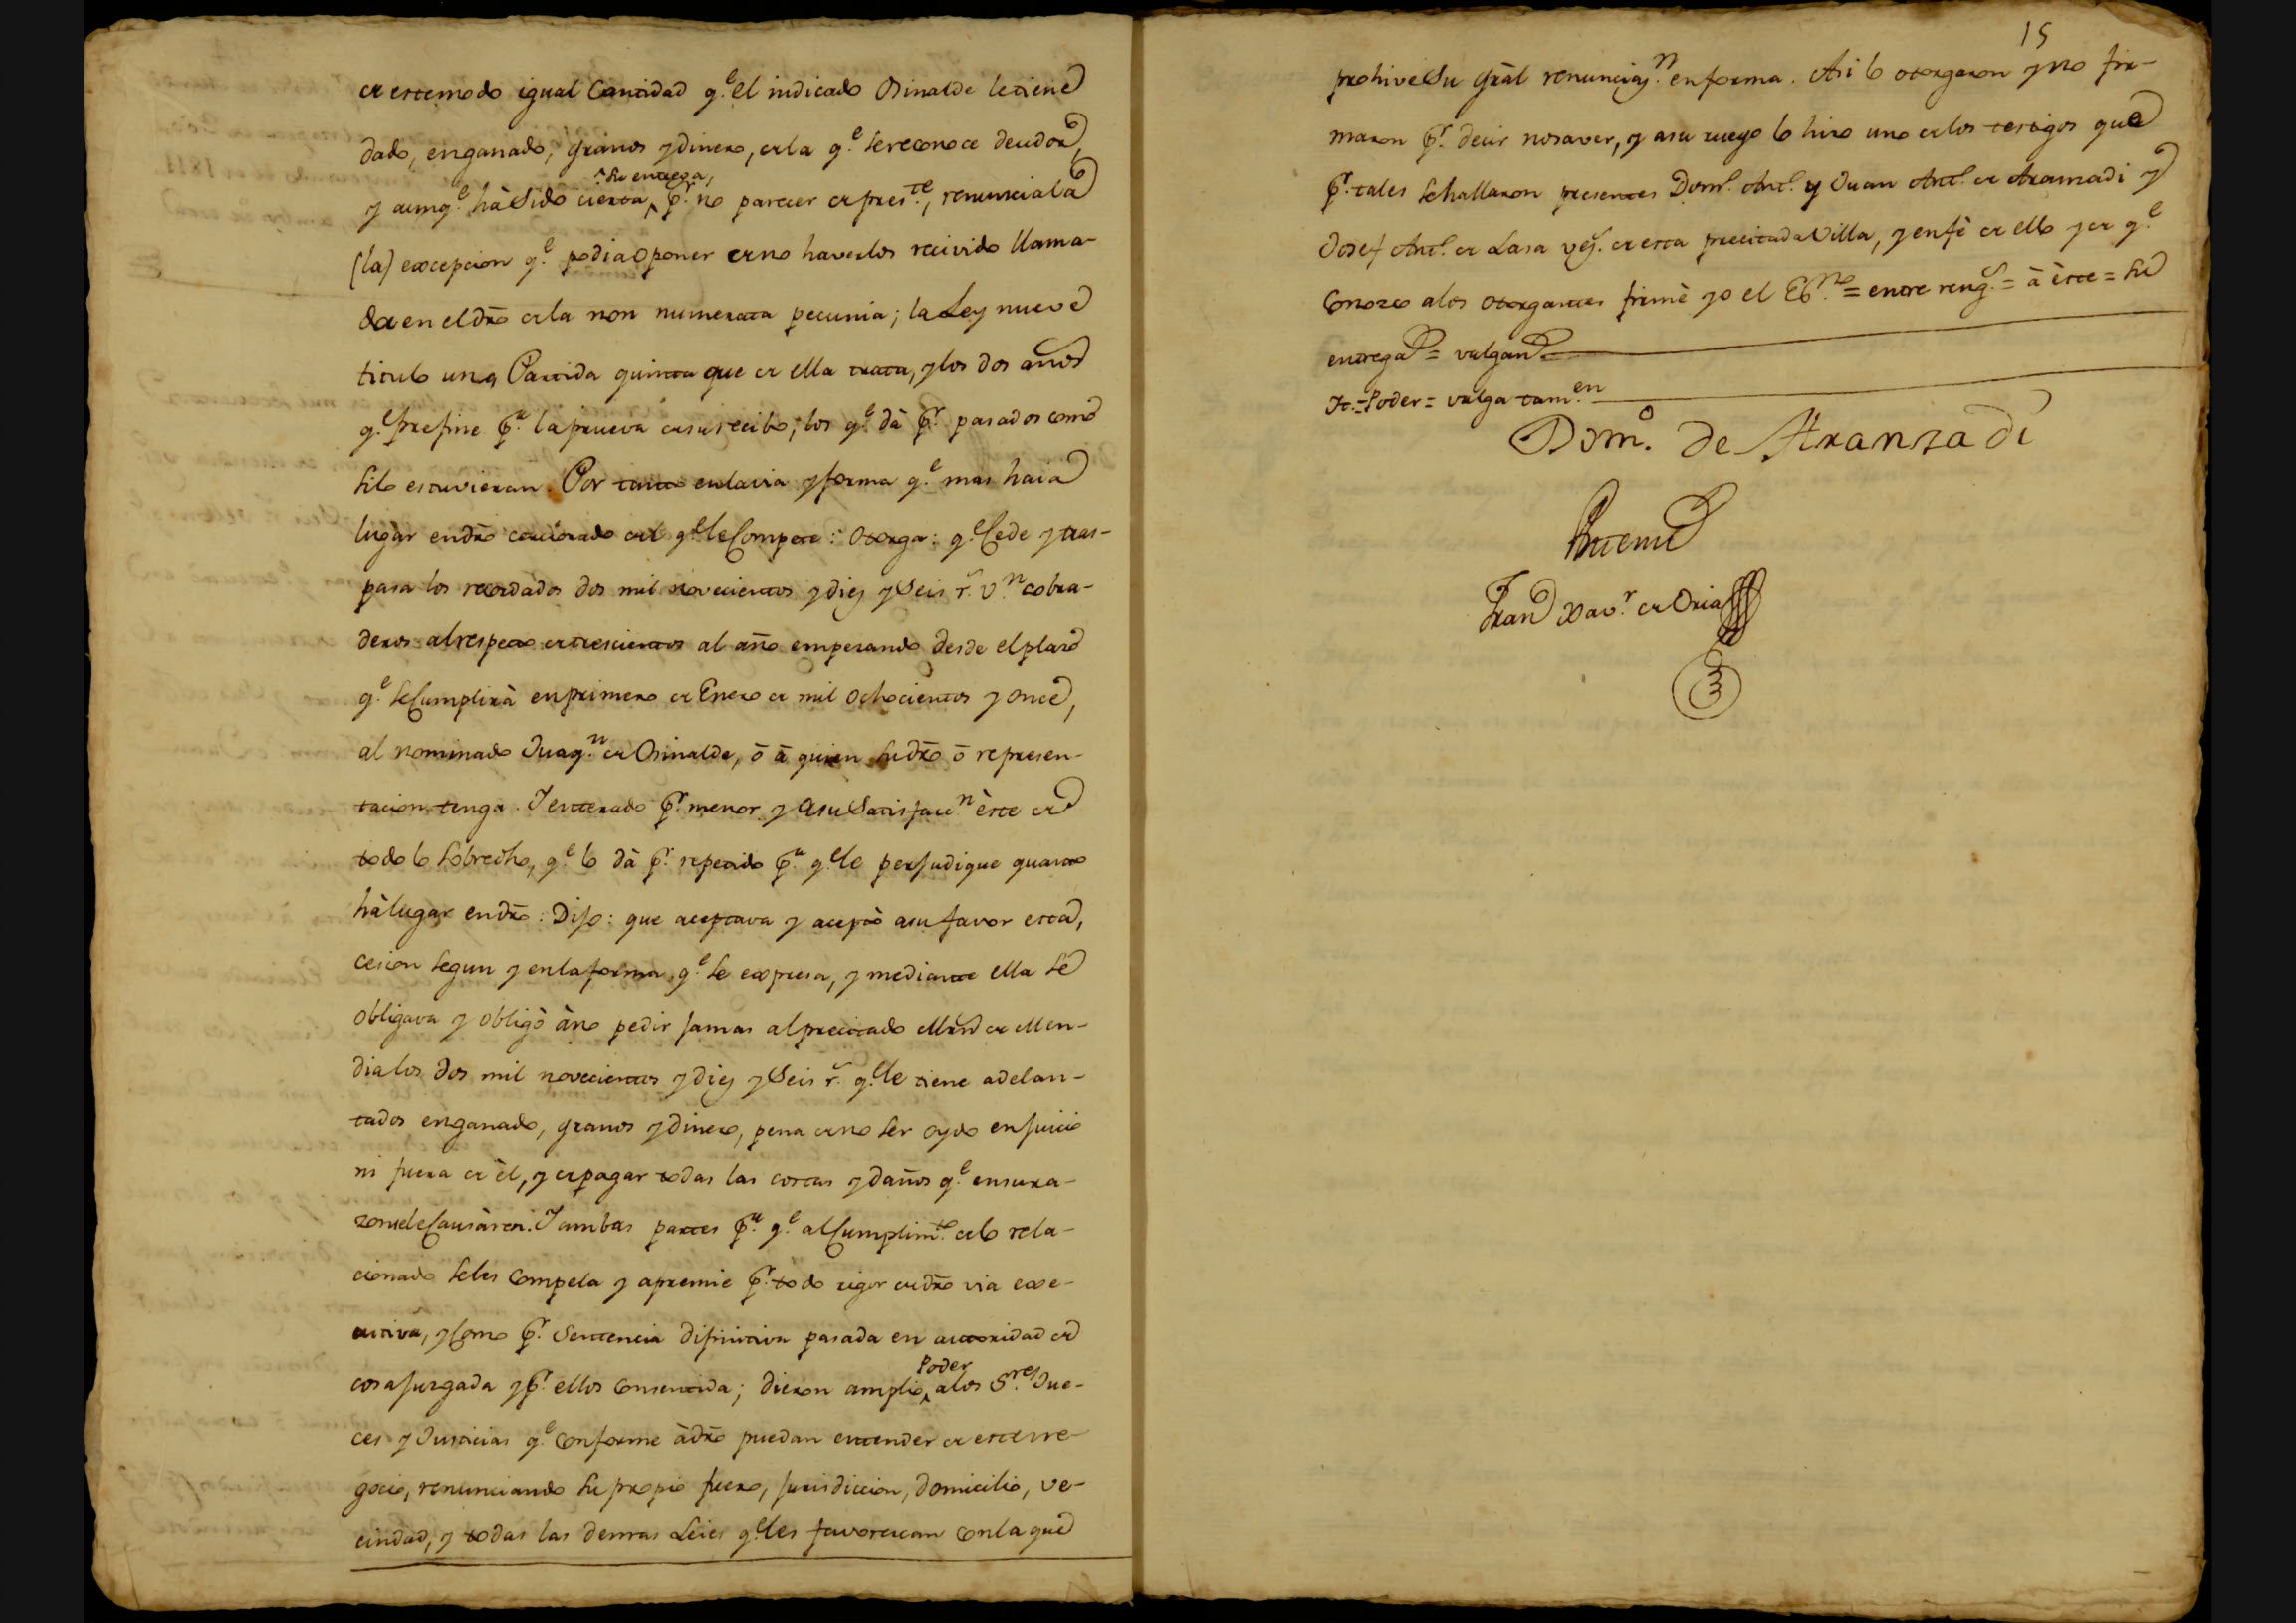 de este modo igual Cantidad q.e el indicado Osinalde le tiene
dado, en ganado, granos y dinero, de la q.e se reconoce deudor,
su entrega,
y aunq.e hà sido cierta p.r no parecer de pres.te, renuncia la
(la) excepcion q.e podia oponer de no haverlos recivido llama-
da en el dro de la non numerata pecunia; la Ley nueve
titulo uno Partida quinta que de ella trata, y los dos años
q.e prefine p.a la prueva de su recibo, los q.e dà p.r pasados como
si lo estuvieran. Por tanto en la via y forma q.e mas haia
lugàr en dro cerciorado del q.e le Compete: Otorga: q.e Cede y tras-
pasa los recordados dos mil novecientos y diez y Seis r.s v.n cobra-
deros al respecto de trescientos al año empezando desde el plazo
q.e se Cumplirà en primero de Enero de mil ochocientos y once,
al nominado Juaq.n de Osinalde, ò à quien su dro ò represen-
tacion tenga. Y enterado p.r menor y a su Satisfacc.n èste de
todo lo sobredho, q.e lo dà p.r repetido p.a q.e le perjudique quanto
hà lugar en dro: Dijo: que aceptava y aceptò a su favor esta,
cesion segun y en la forma q.e se expresa, y mediante ella se
obligava y obligò à no pedir jamas al precitado Mrn de Men-
dia los dos mil novecientos y diez y Seis r.s q.e le tiene adelan-
tados en ganado, granos y dinero, pena de no ser oydo en juicio
ni fuera de èl, y de pagar todas las costas y daños q.e en su ra-
zon se le Causàren. Y ambas partes p.a q.e al Cumplim.to de lo rela-
cionado se les Compela y apremie p.r todo rigor de dro via exe-
cutiva, y Como p.r Sentencia difinitiva pasada en autoridad de
Poder
cosa juzgada y p.r ellos Consentida; dieron amplio a los S.res Jue-
ces y Justicias q.e Conforme à dro puedan entender de este ne-
gocio, renunciando su propio fuero, jurisdiccion, domicilio, ve-
cindad, y todas las demas Leies q.e les favorezcan Con la que
15
prohive su Gràl renunciaz.n en forma. Asi lo otorgaron y no fir-
maron p.r decir no saver, y a su ruego lo hizo uno de los testigos que
p.r tales se hallaron presentes Dom.o Ant.o y Juan Ant.o de Aramadi y
Josef Ant.o de Lasa vez.s de esta precitada Villa, y en fè de ello y de q.e
Conozco a los Otorgantes firmè yo el Es.no = entre reng.s = à èste = su
entrega = valgan
It. = Poder = valga tam.en
Dom.o de Aranzadi
Ante mi
Fran.co Xav.r de Oria